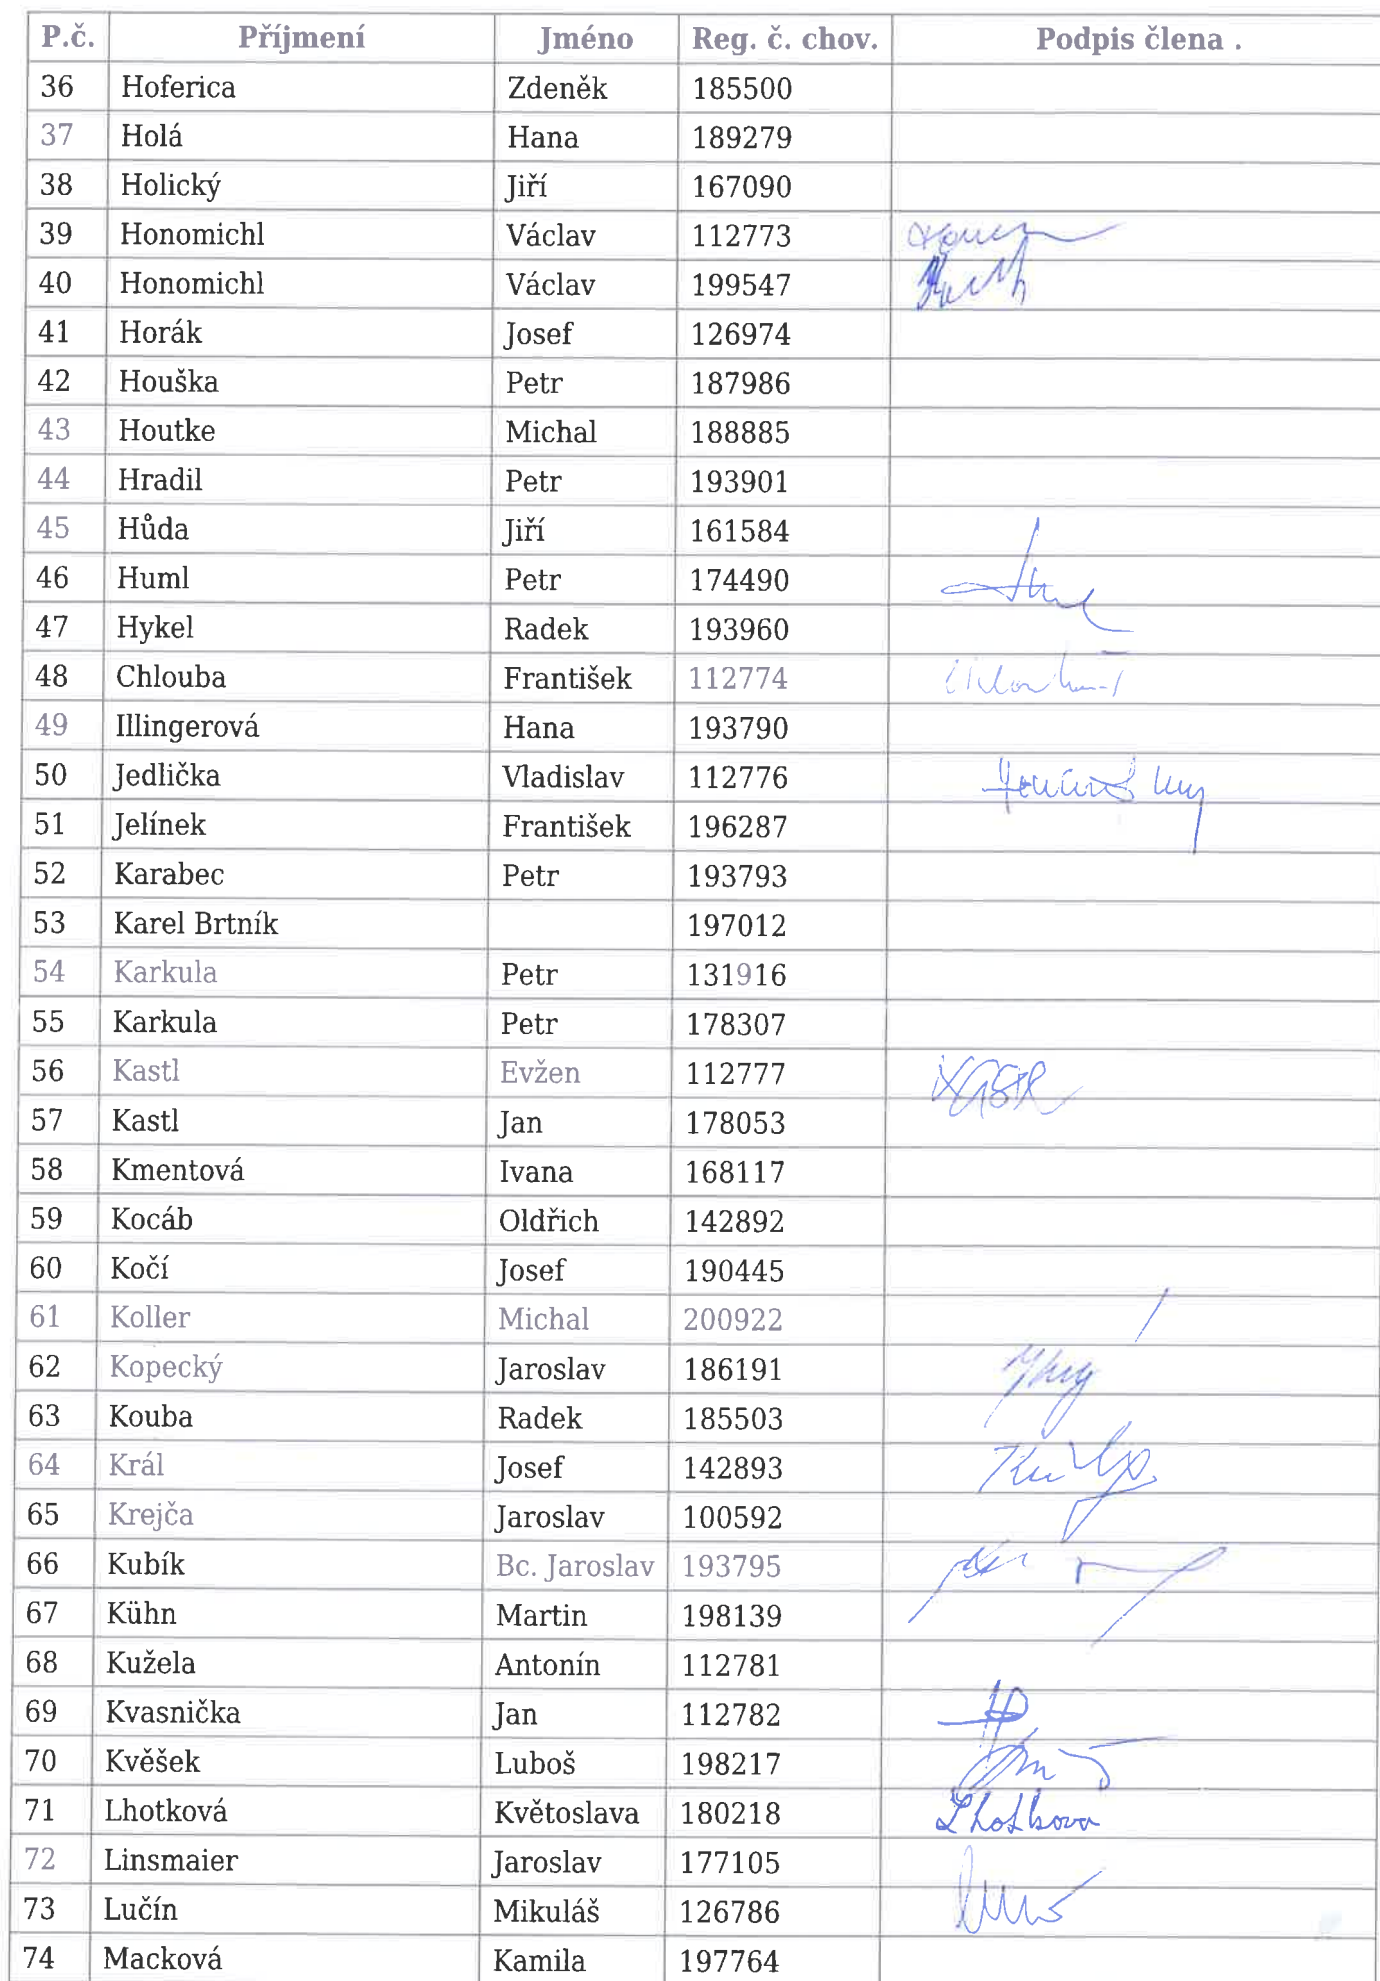 P.č. Příjmení Jméno Reg. č. chov. Podpis člena .
36 Hoferica Zdeněk 185500
37 Holá Hana 189279
38 Holický Jiří 167090
39 Honomichl Václav 112773
40 Honomichl Václav 199547
41 Horák Josef 126974
42 Houška Petr 187986
43 Houtke Michal 188885
44 Hradil Petr 193901
45 Hůda Jiří 161584
46 Huml Petr 174490
47 Hykel Radek 193960
48 Chlouba František 112774
49 Illingerová Hana 193790
50 Jedlička Vladislav 112776
51 Jelínek František 196287
52 Karabec Petr 193793
53 Karel Brtník 197012
54 Karkula Petr 131916
55 Karkula Petr 178307
56 Kastl Evžen 112777
57 Kastl Jan 178053
58 Kmentová Ivana 168117
59 Kocáb Oldřich 142892
60 Kočí Josef 190445
61 Koller Michal 200922
62 Kopecký Jaroslav 186191
63 Kouba Radek 185503
64 Král Josef 142893
65 Krejča Jaroslav 100592
66 Kubík Bc. Jaroslav 193795
67 Kühn Martin 198139
68 Kužela Antonín 112781
69 Kvasnička Jan 112782
70 Kvěšek Luboš 198217
71 Lhotková Květoslava 180218 Lhotkova
72 Linsmaier Jaroslav 177105
73 Lučín Mikuláš 126786
74 Macková Kamila 197764